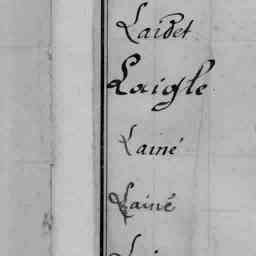 Laidet
Laigle
Lainé
Lainé